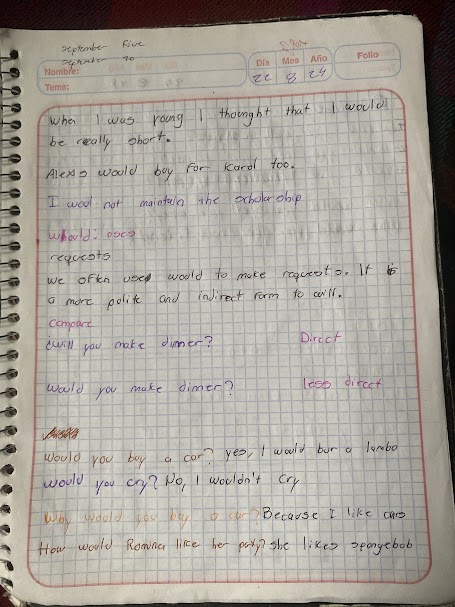 september Five
september 20
Nombre:
Tema:
Día Mes Año
22 8 24
Folio
When I was young I thounght that I would
be really short.
Alexis would boy for Karol too.
I wool not maintain the scholarship
Whould: uses
requests
we often used would to make requests. It is
a more polite and indirect form to will.
compare
will you make dinner? Direct
Would you make dinner? less direct
Would you buy a car? yes, I would bur a lambo
would you cry? No, I wouldn't cry
Why would you buy a car? Because I like cars
How would Romina like her party? she likes spongebob